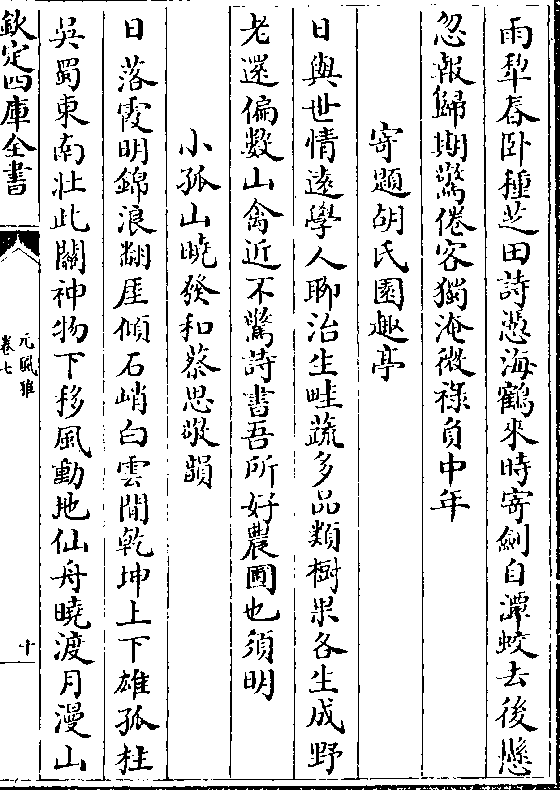 雨犁春卧種芝田詩慿海鶴來時寄劍自潭蛟去後懸
忽報歸期驚倦客獨淹微祿負中年
寄題胡氏園趣亭
日與世情遠學人聊治生畦蔬多品類樹果各生成野
老還偏數山禽近不驚詩書吾所好農圃也須明
小孤山曉發和蔡思敬韻
日落霞明錦浪翻厓傾石峭白雲閒乾坤上下雄孤柱
吳蜀東南壯此關神物下移風動地仙舟曉渡月漫山
欽定四庫全書
元風雅
卷七
十